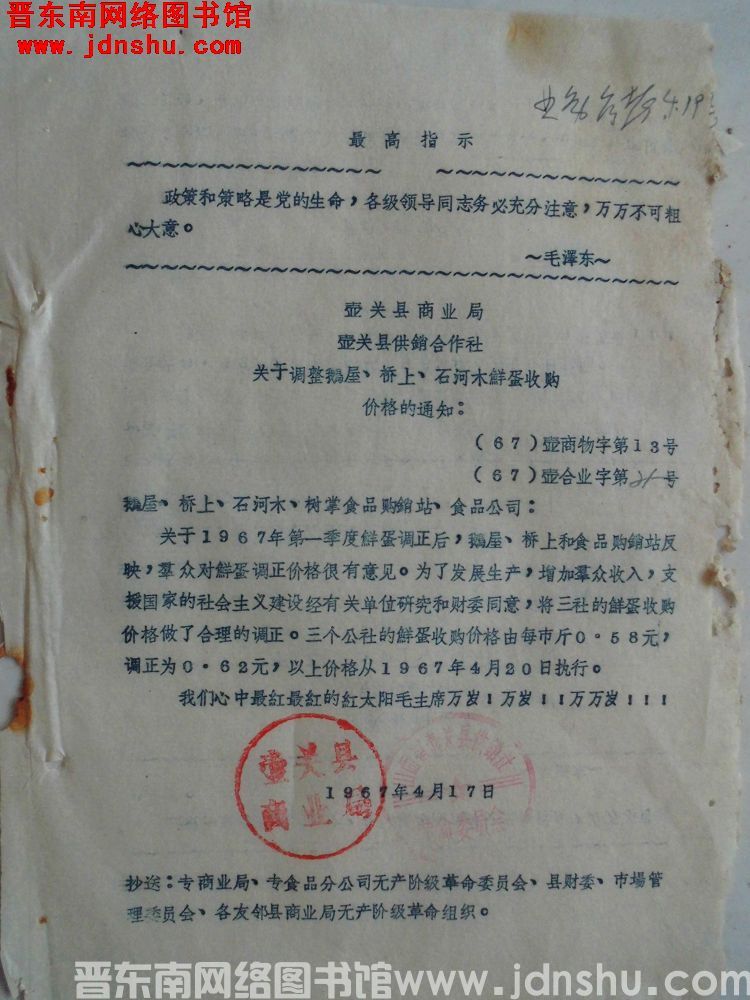 晋东南网络图书馆
www.jdnshu.com
4.19
最高指示
政策和策略是党的生命，各级领导同志务必充分注意，万万不可粗
心大意。
～毛澤东～
壶关县商业局
壶关县供銷合作社
关于调整鵝屋、桥上、石河木鮮蛋收购
价格的通知：
（67）壶商物字第13号
（67）壶合业字第21号
鵝屋、桥上、石河木、树掌食品购銷站、食品公司：
关于1967年第一季度鮮蛋调正后，鵝屋、桥上和食品购銷站反
映，羣众对鮮蛋调正价格很有意见。为了发展生产，增加羣众收入，支
援国家的社会主义建设经有关单位研究和财委同意，将三社的鮮蛋收购
价格做了合理的调正。三个公社的鮮蛋收购价格由每市斤0·58元，
调正为0·62元，以上价格从1967年4月20日执行。
我们心中最紅最紅的紅太阳毛主席万岁！万岁！！万万岁！！！
壶关县
商业局
1967年4月17日
抄送：专商业局、专食品分公司无产阶级革命委员会、县财委、市場管
理委员会、各友邻县商业局无产阶级革命组织。
晋东南网络图书馆www.jdnshu.com